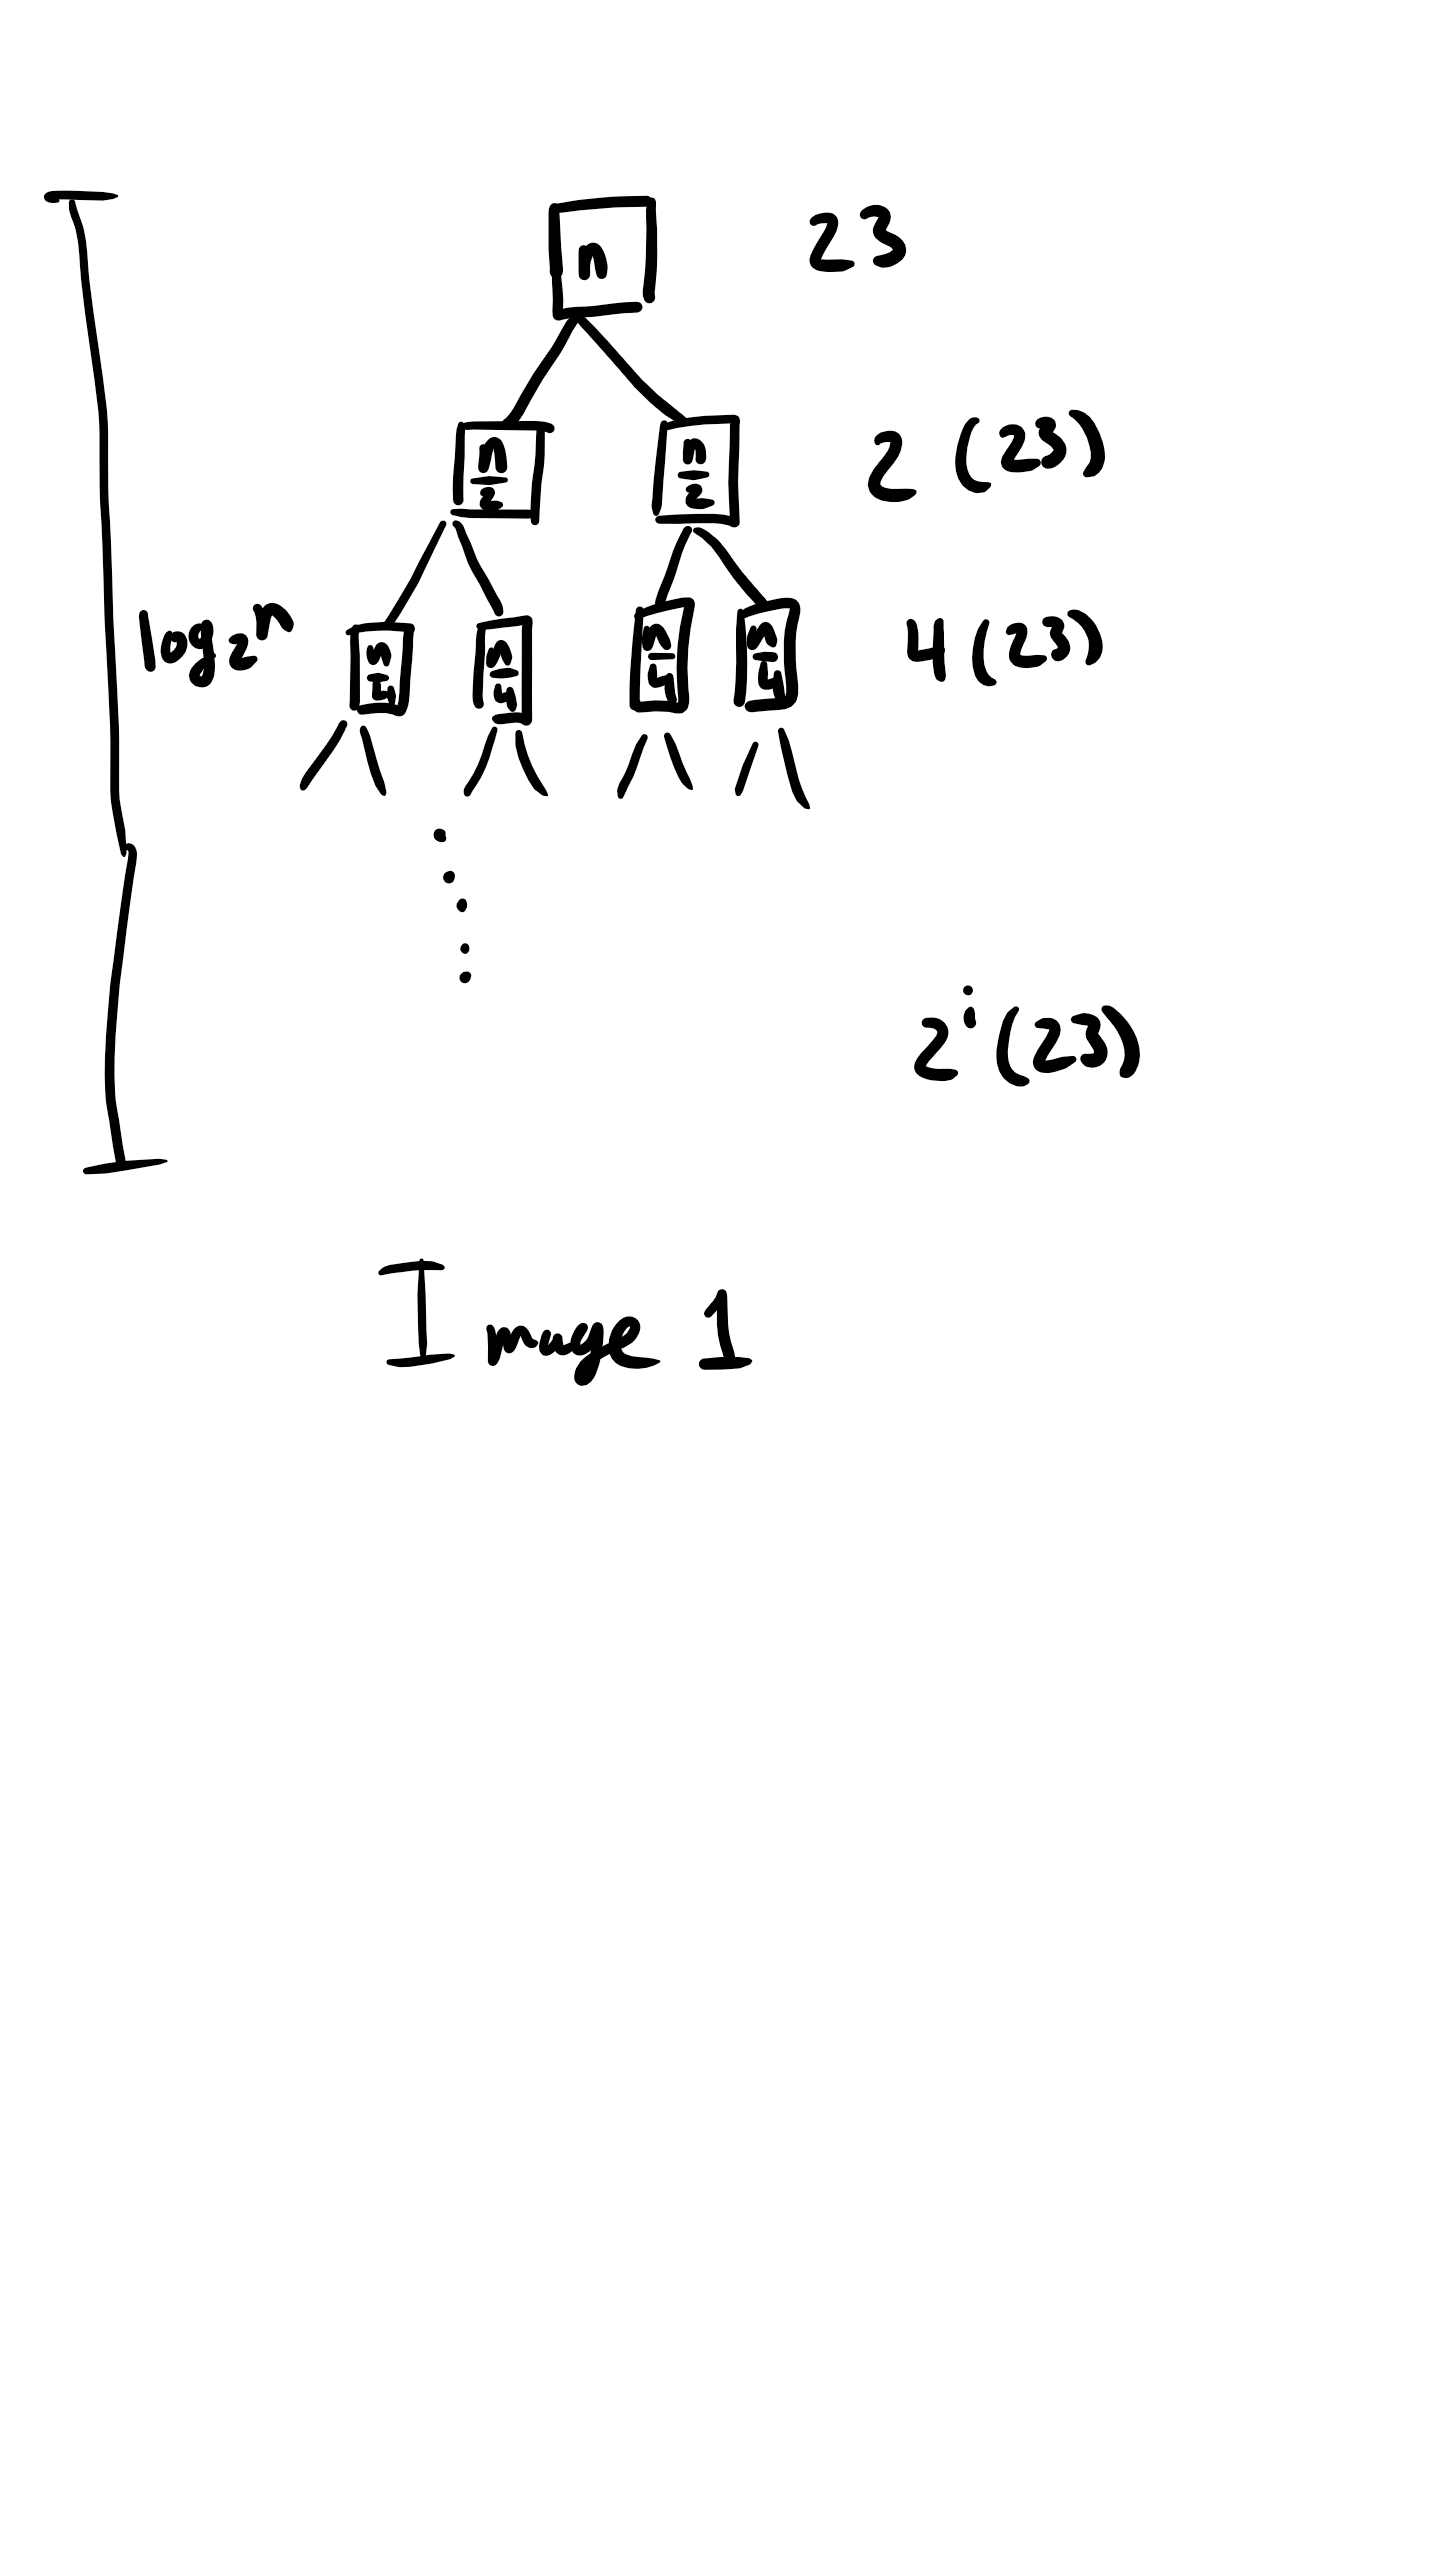 n 23
n/2 n/2 2 (23)
log₂n n/4 n/4 n/4 n/4 4 (23)
2ⁱ (23)
Image 1